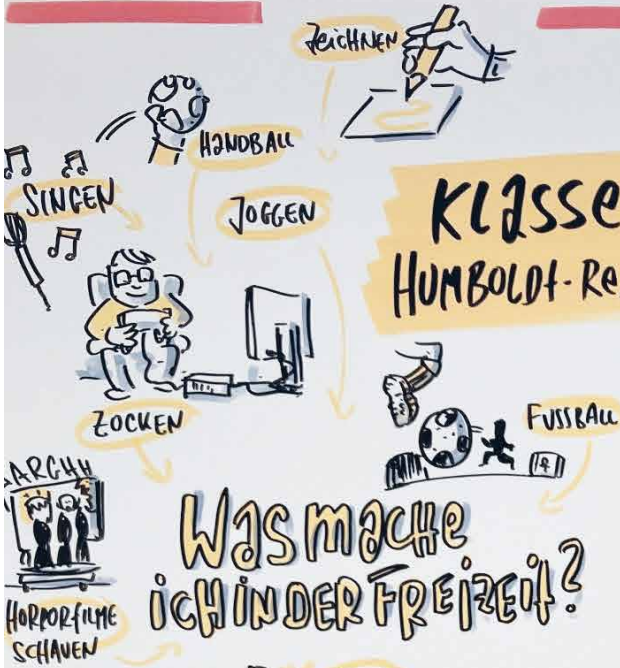 ZEICHNEN
HANDBALL
SINGEN
JOGGEN
KLASSE
HUMBOLDT-RE
ZOCKEN
FUSSBALL
AARGHH
WAS MACHE
ICH IN DER FREIZEIT?
HORRORFILME
SCHAUEN